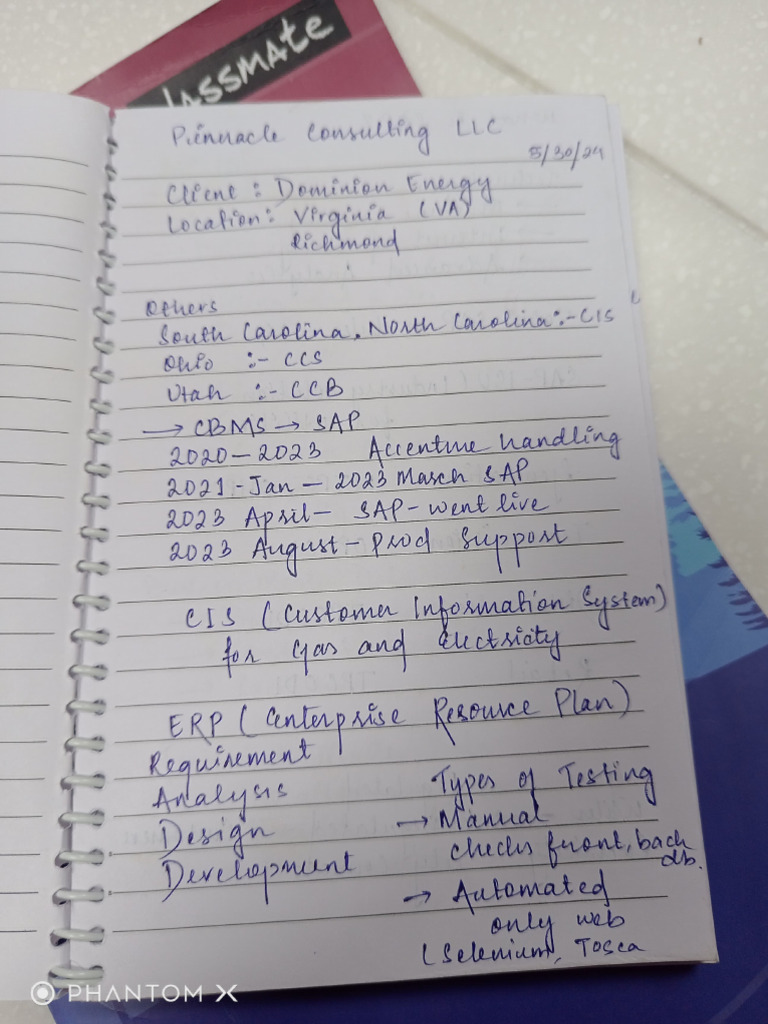 classmate
Pinnacle Consulting LLC
5/30/24
Client :- Dominion Energy
Location:- Virginia (VA)
Richmond
Others
South Carolina, North Carolina:- CIS
Ohio :- CCS
Utah :- CCB
→ CBMS → SAP
2020 – 2023 Accenture handling
2021 - Jan – 2023 March SAP
2023 April – SAP - went live
2023 August – Prod Support
CIS (Customer Information System)
for Gas and Electricity
ERP (Enterprise Resource Plan)
Requirement
Analysis
Design
Development
Types of Testing
→ Manual
checks front, back
db.
→ Automated
only web
(Selenium, Tosca
PHANTOM X